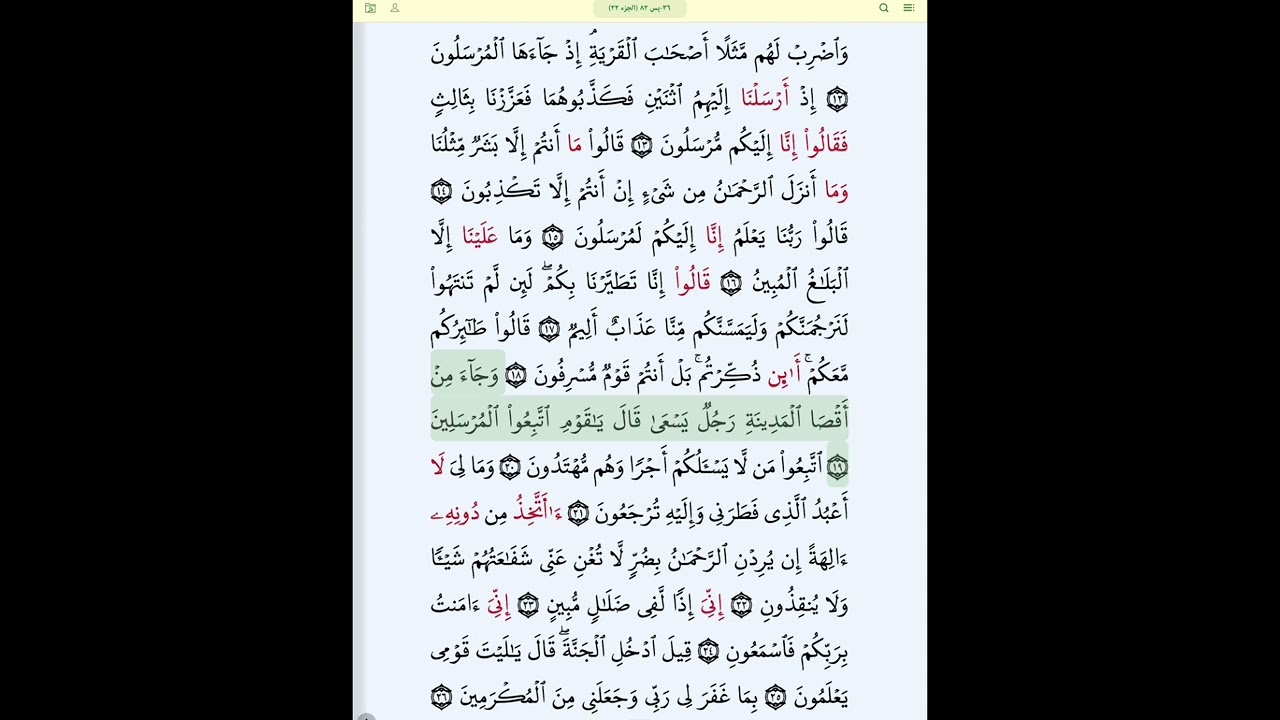 ٣٦-يس ٨٢ (الجزء ٢٢)
وَٱضۡرِبۡ لَهُم مَّثَلًا أَصۡحَٰبَ ٱلۡقَرۡيَةِ إِذۡ جَآءَهَا ٱلۡمُرۡسَلُونَ
١٢ إِذۡ أَرۡسَلۡنَا إِلَيۡهِمُ ٱثۡنَيۡنِ فَكَذَّبُوهُمَا فَعَزَّزۡنَا بِثَالِثٍ
فَقَالُوٓاْ إِنَّا إِلَيۡكُم مُّرۡسَلُونَ ١٣ قَالُواْ مَا أَنتُمۡ إِلَّا بَشَرٌ مِّثۡلُنَا
وَمَا أَنزَلَ ٱلرَّحۡمَٰنُ مِن شَيۡءٍ إِنۡ أَنتُمۡ إِلَّا تَكۡذِبُونَ ١٤
قَالُواْ رَبُّنَا يَعۡلَمُ إِنَّا إِلَيۡكُمۡ لَمُرۡسَلُونَ ١٥ وَمَا عَلَيۡنَا إِلَّا
ٱلۡبَلَٰغُ ٱلۡمُبِينُ ١٦ قَالُواْ إِنَّا تَطَيَّرۡنَا بِكُمۡۖ لَئِن لَّمۡ تَنتَهُواْ
لَنَرۡجُمَنَّكُمۡ وَلَيَمَسَّنَّكُم مِّنَّا عَذَابٌ أَلِيمٌ ١٧ قَالُواْ طَٰٓئِرُكُم
مَّعَكُمۡۚ أَٰئِن ذُكِّرۡتُمۚ بَلۡ أَنتُمۡ قَوۡمٌ مُّسۡرِفُونَ ١٨ وَجَآءَ مِنۡ
أَقۡصَا ٱلۡمَدِينَةِ رَجُلٌ يَسۡعَىٰ قَالَ يَٰقَوۡمِ ٱتَّبِعُواْ ٱلۡمُرۡسَلِينَ
١٩ ٱتَّبِعُواْ مَن لَّا يَسۡـَٔلُكُمۡ أَجۡرًا وَهُم مُّهۡتَدُونَ ٢٠ وَمَا لِيَ لَا
أَعۡبُدُ ٱلَّذِى فَطَرَنِى وَإِلَيۡهِ تُرۡجَعُونَ ٢١ ءَأَٰتَّخِذُ مِن دُونِهِۦ
ءَالِهَةً إِن يُرِدۡنِ ٱلرَّحۡمَٰنُ بِضُرٍّ لَّا تُغۡنِ عَنِّى شَفَٰعَتُهُمۡ شَيۡـًٔا
وَلَا يُنقِذُونِ ٢٢ إِنِّيَ إِذًا لَّفِى ضَلَٰلٍ مُّبِينٍ ٢٣ إِنِّيَ ءَامَنتُ
بِرَبِّكُمۡ فَٱسۡمَعُونِ ٢٤ قِيلَ ٱدۡخُلِ ٱلۡجَنَّةَۖ قَالَ يَٰلَيۡتَ قَوۡمِى
يَعۡلَمُونَ ٢٥ بِمَا غَفَرَ لِى رَبِّى وَجَعَلَنِى مِنَ ٱلۡمُكۡرَمِينَ ٢٦